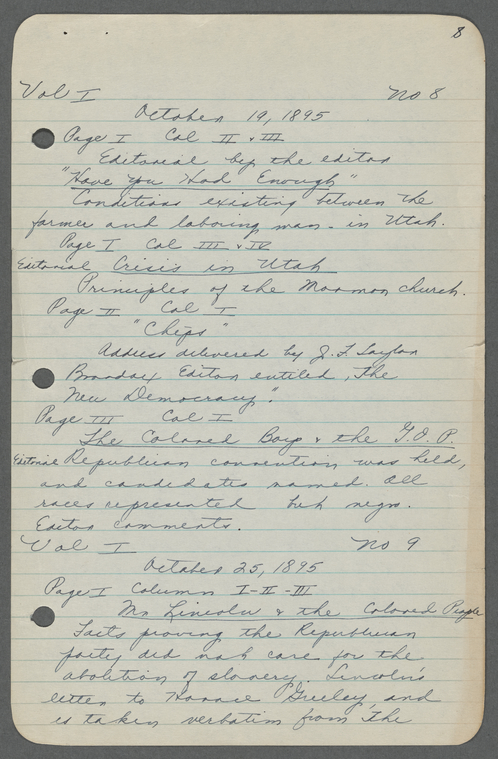 8
Vol I No 8
October 19, 1895
Page I Col II & III
Editorial by the editor
"Have You Had Enough"
Conditions existing between the
farmer and laboring man. in Utah.
Page I Col III & IV
Editorial Crisis in Utah
Principles of the Mormon church.
Page II Col I
"Chips"
Address delivered by J. T.
Broadax Editor entitled, "The
New Democracy".
Page III Col I
The Colored Boys & the G.O.P.
Editorial Republican convention was held,
and candidates named. All
races represented but negro.
Editor comments.
Vol I No 9
October 25, 1895
Page I Column I-II-III
Mr Lincoln & the Colored People
Facts proving the Republican
party did not care for the
abolition of slavery. Lincoln's
letter to Horace Greeley, and
is taken verbatim from The